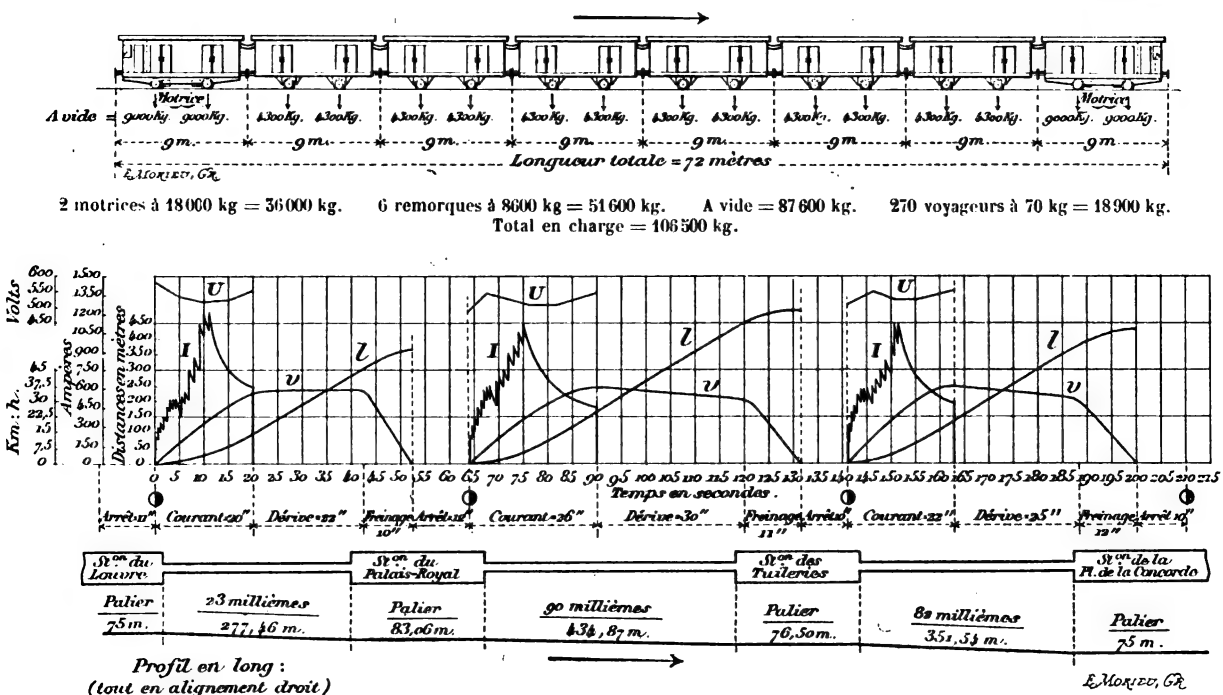 Motrice
Motrice
A vide = 9000 Kg. 9000 Kg. 4300 Kg. 4300 Kg. 4300 Kg. 4300 Kg. 4300 Kg. 4300 Kg. 4300 Kg. 4300 Kg. 4300 Kg. 4300 Kg. 4300 Kg. 4300 Kg. 9000 Kg. 9000 Kg.
9 m. 9 m. 9 m. 9 m. 9 m. 9 m. 9 m. 9 m.
Longueur totale = 72 mètres
E. MORIEU, GR.
2 motrices à 18000 kg = 36000 kg. 6 remorques à 8600 kg = 51600 kg. A vide = 87600 kg. 270 voyageurs à 70 kg = 18900 kg.
Total en charge = 106500 kg.
Volts
600
550
500
450
Km : h.
45
37,5
30
22,5
15
7,5
0
Ampères
1500
1350
1200
1050
900
750
600
450
300
150
0
Distances en mètres
450
400
350
300
250
200
150
100
50
0
U I v l
U I v l
U I v l
0 5 10 15 20 25 30 35 40 45 50 55 60 65 70 75 80 85 90 95 100 105 110 115 120 125 130 135 140 145 150 155 165 170 175 180 185 190 195 200 205 210 215
Temps en secondes.
Arrêt=11" Courant=20" Dérive=22" Freinage 10" Arrêt=12" Courant=26" Dérive=30" Freinage 11" Courant=22" Dérive=25" Freinage 12" Arrêt 10"
St.on du Louvre
St.on du Palais-Royal
St.on des Tuileries
St.on de la Pl. de la Concorde
Palier 23 millièmes Palier 90 millièmes Palier 82 millièmes Palier
75 m. 277,46 m. 83,06 m. 434,87 m. 76,50 m. 351,54 m. 75 m.
Profil en long :
(tout en alignement droit)
E. MORIEU, GR.